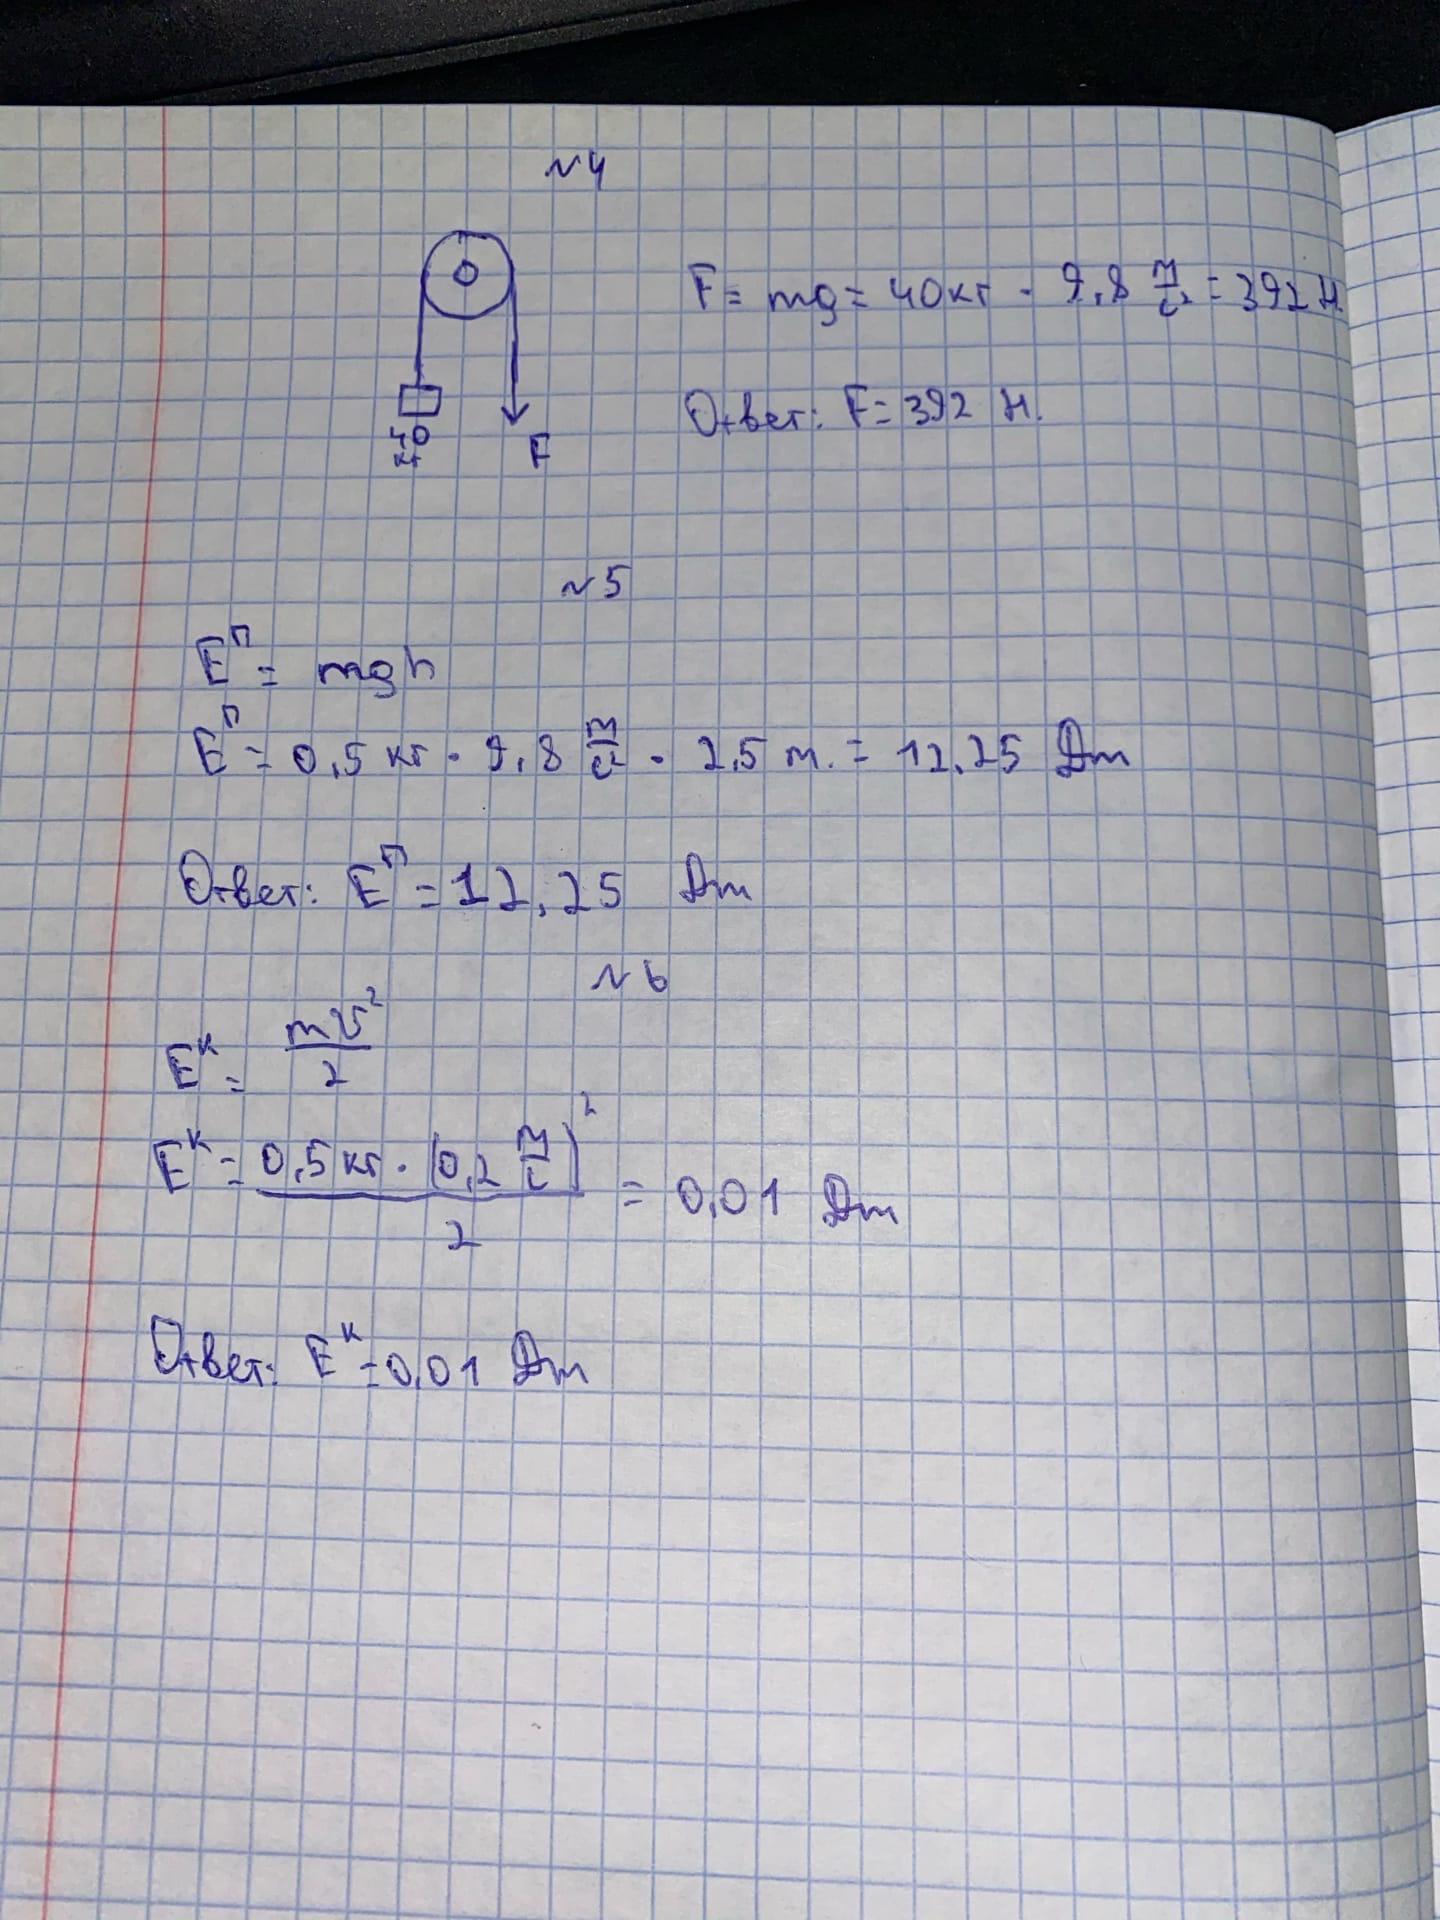 №4
F = mg = 40 кг · 9,8 м/с² = 392 Н.
40 кг
F
Ответ: F = 392 Н.
№5
Eᴨ = mgh
Eᴨ = 0,5 кг · 9,8 м/с² · 2,5 м. = 12,25 Дж
Ответ: Eᴨ = 12,25 Дж
№6
Eᴷ = mv²/2
Eᴷ = 0,5 кг · (0,2 м/с)²/2 = 0,01 Дж
Ответ: Eᴷ = 0,01 Дж